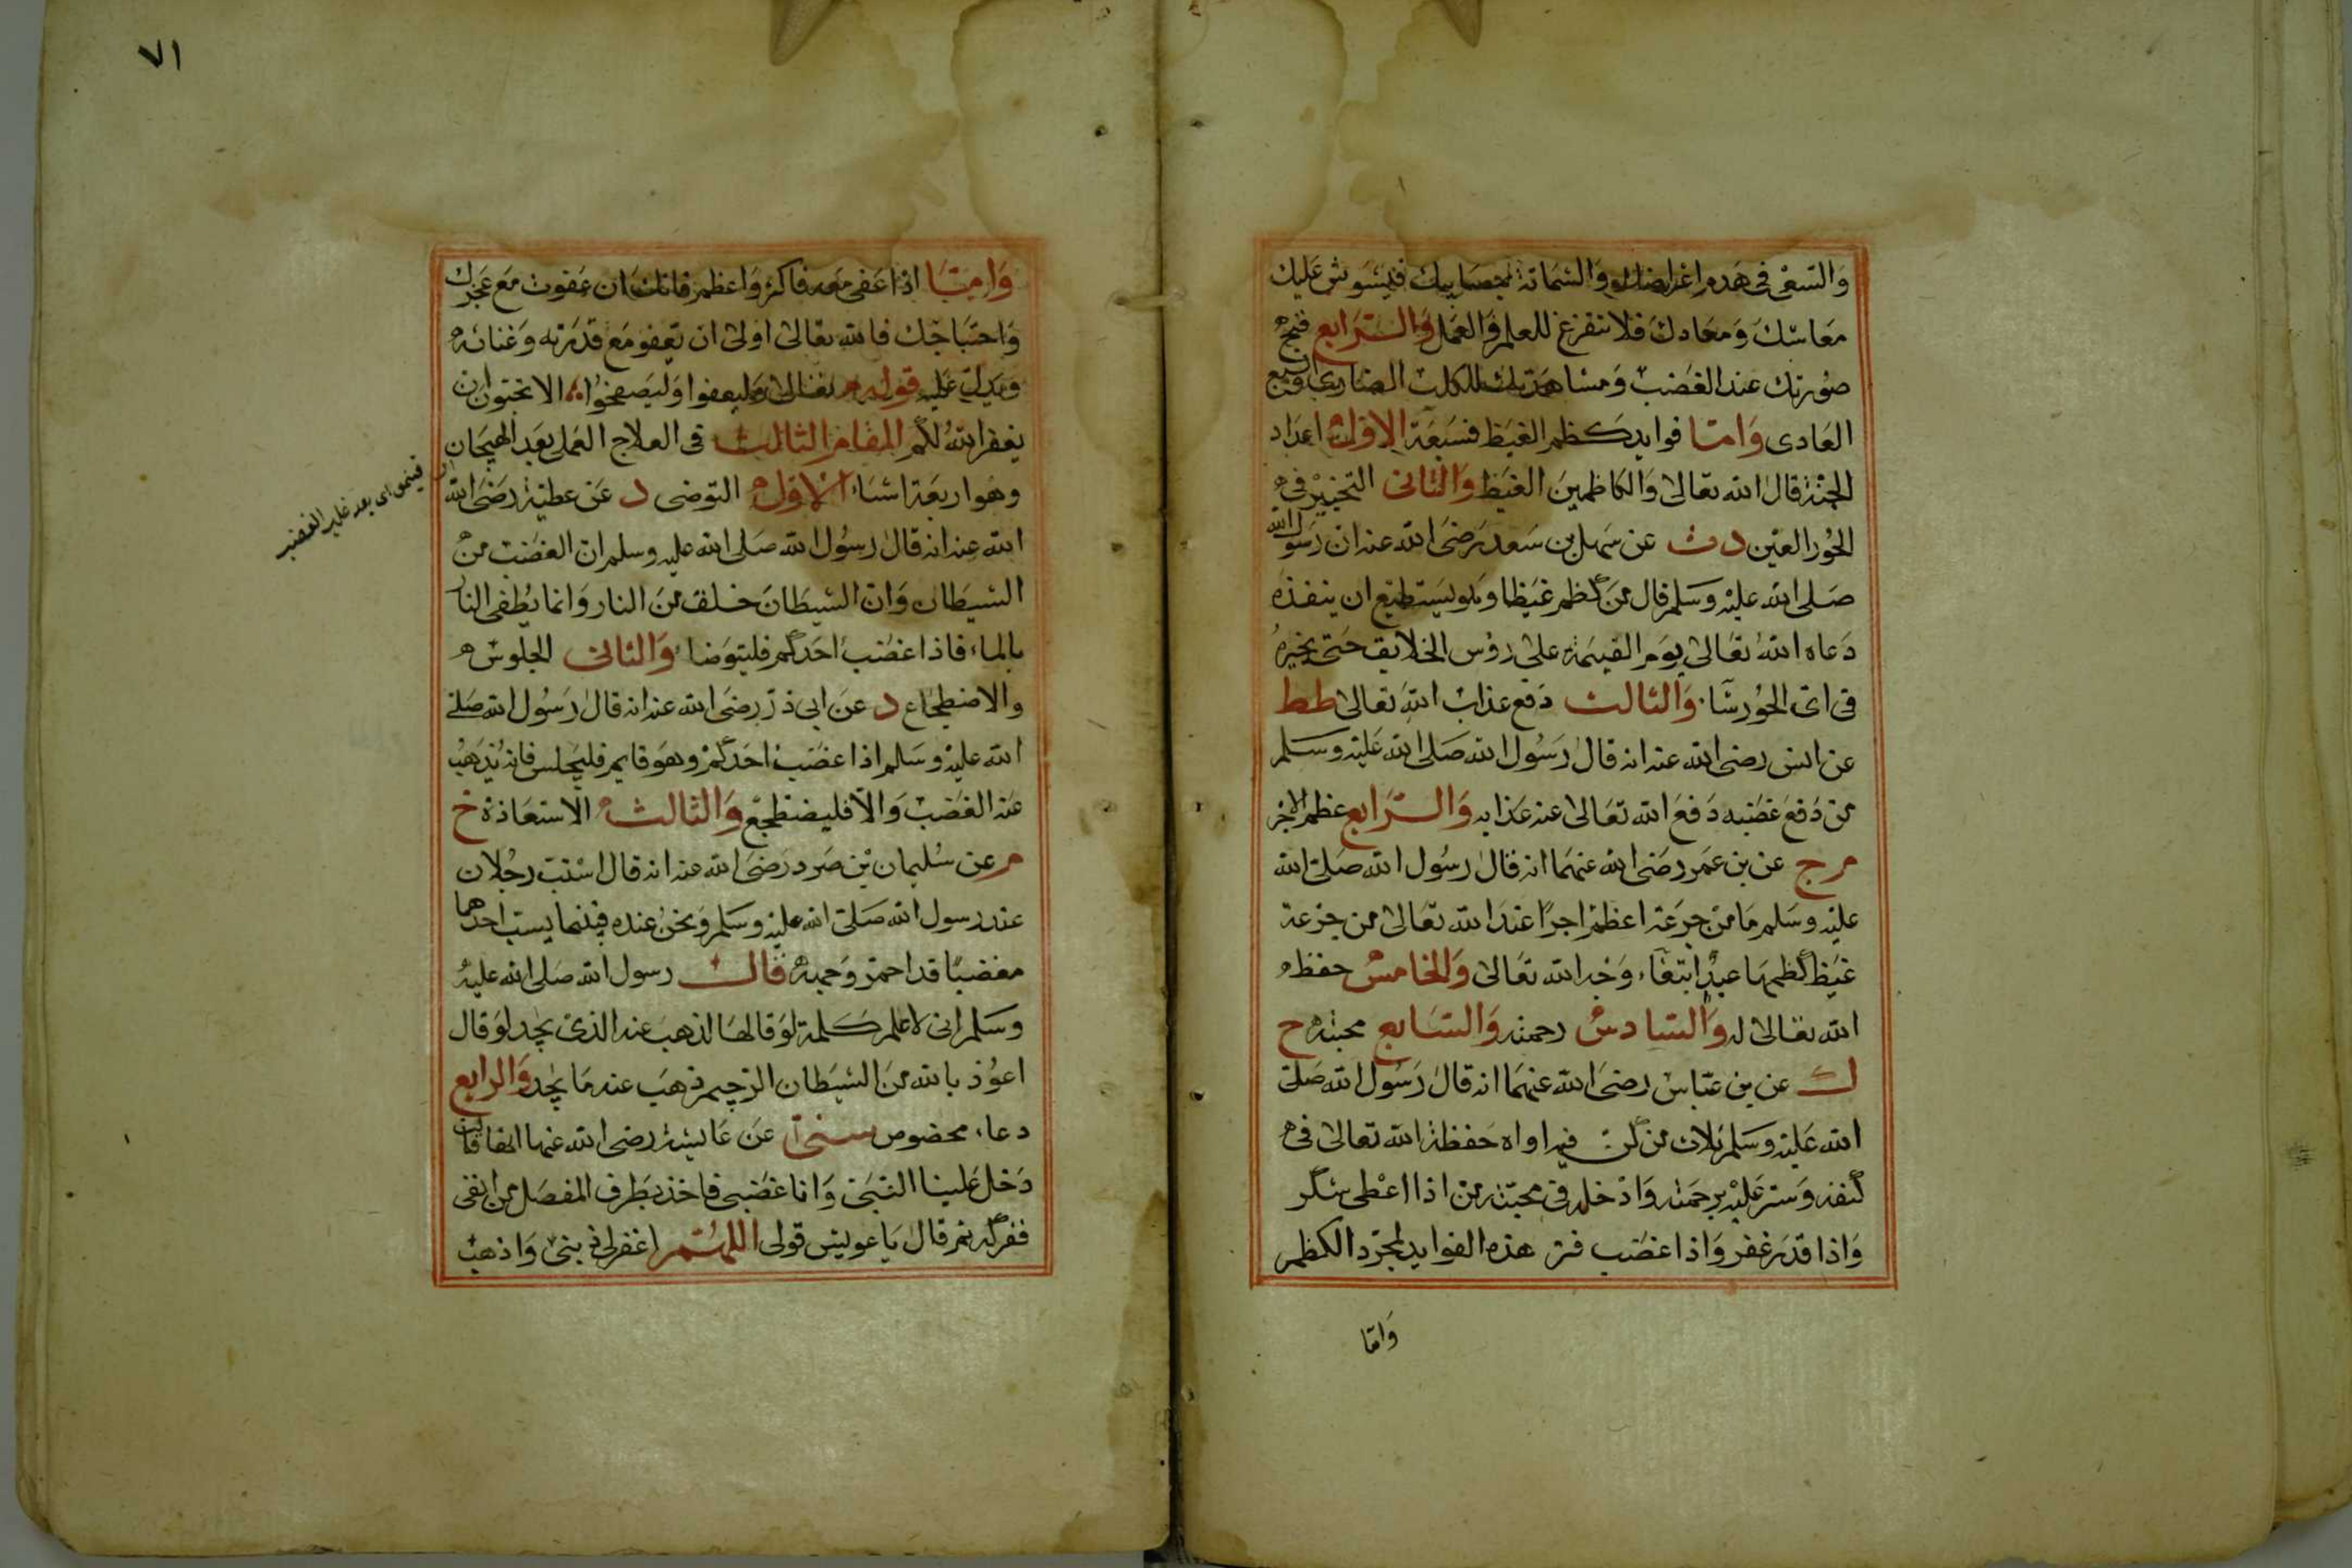 والسعى فى هدم اغراضك والشماتة بمصايبك فيشوش عليك
معاشك ومعادك فلا تتفرغ للعلم والعمل والرابع قبح
صورتك عند الغضب ومشابهتك للكلب الضارى والسبع
العادى وامّا فوايد كظم الغيظ فسبعة الاول اعداد
الجنة قال الله تعالى والكاظمين الغيظ والثانى التخيير فى
الحور العين د ت عن سهل بن سعد رضى الله عنه ان رسول الله
صلى الله عليه وسلم قال من كظم غيظا وهو يستطيع ان ينفذه
دعاه الله تعالى يوم القيمة على رؤس الخلايق حتى يخيره
فى اى الحور شآء والثالث دفع عذاب الله تعالى طط
عن انس رضى الله عنه انه قال رسول الله صلى الله عليه وسلم
من دفع غضبه دفع الله تعالى عنه عذابه والرابع عظم الاجر
مج عن بن عمر رضى الله عنهما انه قال رسول الله صلى الله
عليه وسلم ما من جرعة اعظم اجرًا عند الله تعالى من جرعة
غيظ كظمها عبد ابتغاء وجه الله تعالى والخامس حفظ
الله تعالى له والسادس رحمته والسابع محبته ح
ك عن بن عباس رضى الله عنهما انه قال رسول الله صلى
الله عليه وسلم ثلاث من كن فيه اواه حفظه الله تعالى فى
كنفه وستر عليه برحمته وادخله فى محبته من اذا اعطى شكر
واذا قدر غفر واذا غضب فتر هذه الفوايد لمجرد الكظم
وامّا
٧١
وامّا اذا عفى معه فاكثر واعظم فانك ان عفوت مع عجزك
واحتياجك فالله تعالى اولى ان تعفو مع قدرته وغنائه
ويدل عليه قوله تعالى وليعفوا وليصفحوا الا تحبون ان
يغفر الله لكم المقام الثالث فى العلاج العملى بعد الهيجان
وهو اربعة اشياء الاول التوضى د عن عطية رضى الله
الله عنه انه قال رسول الله صلى الله عليه وسلم ان الغضب من
الشيطان وان الشيطان خلق من النار وانما يطفى النار
بالماء فاذا غضب احدكم فليتوضا والثانى الجلوس
والاضطجاع د عن ابى ذر رضى الله عنه انه قال رسول الله صلى
الله عليه وسلم اذا غضب احدكم وهو قايم فليجلس فانه يذهب
عنه الغضب والا فليضطجع والثالث الاستعاذة خ
م عن سليمان بن صرد رضى الله عنه انه قال استب رجلان
عند رسول الله صلى الله عليه وسلم ونحن عنده فبينما يسب احدهما
مغضبًا قد احمر وجهه قال رسول الله صلى الله عليه
وسلم انى لاعلم كلمة لو قالها لذهب عنه الذى يجد لو قال
اعوذ بالله من الشيطان الرجيم ذهب عنه ما يجد والرابع
دعاء مخصوص سنى عن عايشة رضى الله عنها انها قالت
دخل علينا النبى وانا غضبى فاخذ بطرف المفصل من انفى
ففركه ثم قال يا عويش قولى اللهم اغفر لى ذنبى واذهب